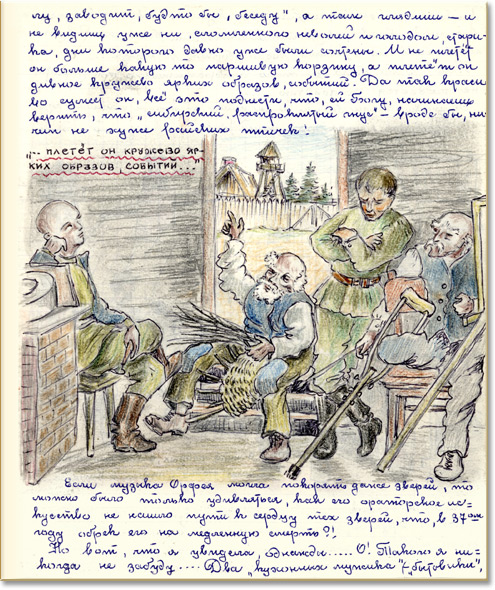 гу, заводит, будто бы, "беседу", а там глядишь – и
не видишь уже ни, сломленного неволей и голодом, стари-
ка, дни которого давно уже были сочтены. И не плетёт
он больше какую-то паршивую корзину, а плетёт он
дивное кружево ярких образов, событий. Да так краси-
во сумеет он, всё это поднести, что, ей Богу, начинаешь
верить, что "сибирский, распроклятый гнус" – вроде бы, ни-
чем не хуже райских птичек!
"... плетёт он кружево яр-
ких образов, событий..."
Если музыка Орфея могла покорять даже зверей, то
можно было только удивляться, как его ораторское ис-
кусство не нашло пути к сердцу тех зверей, что, в 37ом
году обрёк его на медленную смерть?!
Но вот, что я увидела, однажды..... О! Такого я ни-
когда не забуду.... Два "кухонных мужика" – "бытовики",